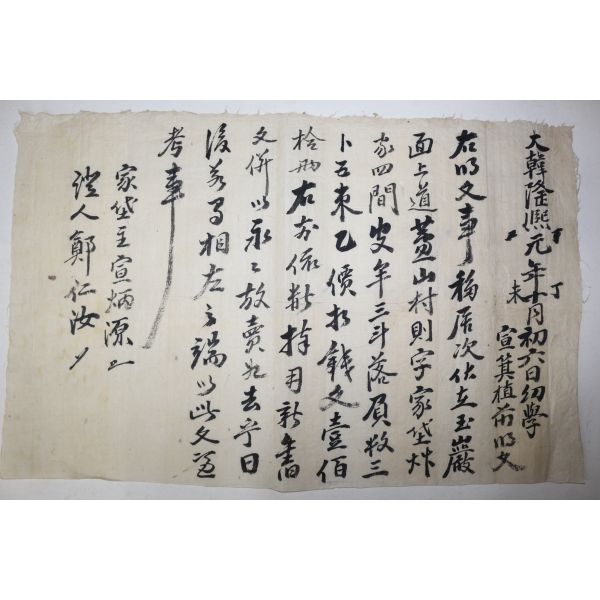 大韓隆熙元年丁未十月初六日幼學
宣箕植前明文
右明文事移居次伏在玉巖
面上道山村則字家垈
家四間皮牟三斗落負數三
卜五束乙價折錢文壹佰
拾兩右前依數捧用新舊
文倂以永〻放賣爲去乎日
後若有相左之端以此文憑
考事
家垈主宣炳源
證人鄭仁汝